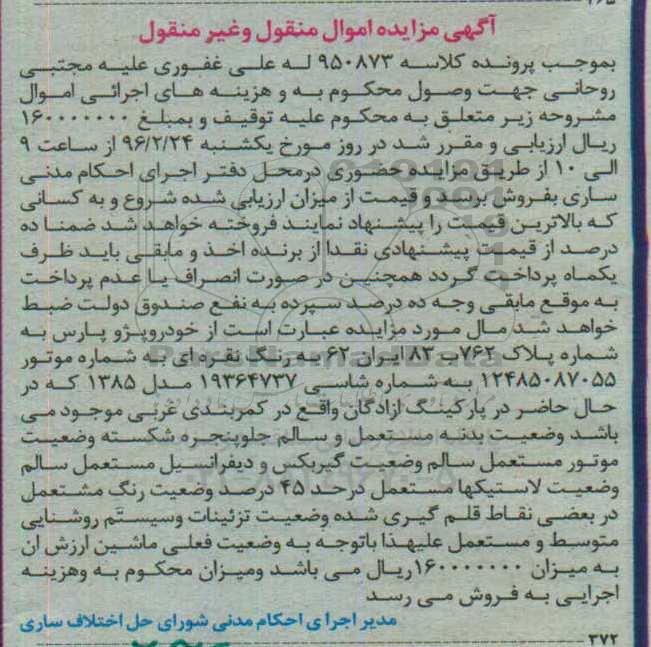 ۲۶۵
آگهی مزایده اموال منقول وغیر منقول
بموجب پرونده کلاسه ۹۵۰۸۷۳ له علی غفوری علیه مجتبی
روحانی جهت وصول محکوم به و هزینه های اجرائی اموال
مشروحه زیر متعلق به محکوم علیه توقیف و بمبلغ ۱۶۰۰۰۰۰۰۰
ریال ارزیابی و مقرر شد در روز مورخ یکشنبه ۹۶/۲/۲۴ از ساعت ۹
الی ۱۰ از طریق مزایده حضوری درمحل دفتر اجرای احکام مدنی
ساری بفروش برسد و قیمت از میزان ارزیابی شده شروع و به کسانی
که بالاترین قیمت را پیشنهاد نمایند فروخته خواهد شد ضمنا ده
درصد از قیمت پیشنهادی نقدا از برنده اخذ و مابقی باید ظرف
یکماه پرداخت گردد همچنین در صورت انصراف یا عدم پرداخت
به موقع مابقی وجه ده درصد سپرده به نفع صندوق دولت ضبط
خواهد شد مال مورد مزایده عبارت است از خودروپژو پارس به
شماره پلاک ۷۶۲ب ۸۳ ایران ۶۲ به رنگ نقره ای به شماره موتور
۱۲۴۸۵۰۸۷۰۵۵ به شماره شاسی ۱۹۳۶۴۷۳۷ مدل ۱۳۸۵ که در
حال حاضر در پارکینگ ازادگان واقع در کمربندی غربی موجود می
باشد وضعیت بدنه مستعمل و سالم جلوپنجره شکسته وضعیت
موتور مستعمل سالم وضعیت گیربکس و دیفرانسیل مستعمل سالم
وضعیت لاستیکها مستعمل درحد ۴۵ درصد وضعیت رنگ مشتعمل
در بعضی نقاط قلم گیری شده وضعیت تزئینات وسیستم روشنایی
متوسط و مستعمل علیهذا باتوجه به وضعیت فعلی ماشین ارزش ان
به میزان ۱۶۰۰۰۰۰۰۰ریال می باشد ومیزان محکوم به وهزینه
اجرایی به فروش می رسد
مدیر اجرا ی احکام مدنی شورای حل اختلاف ساری
۲۷۲
ParsNamadData